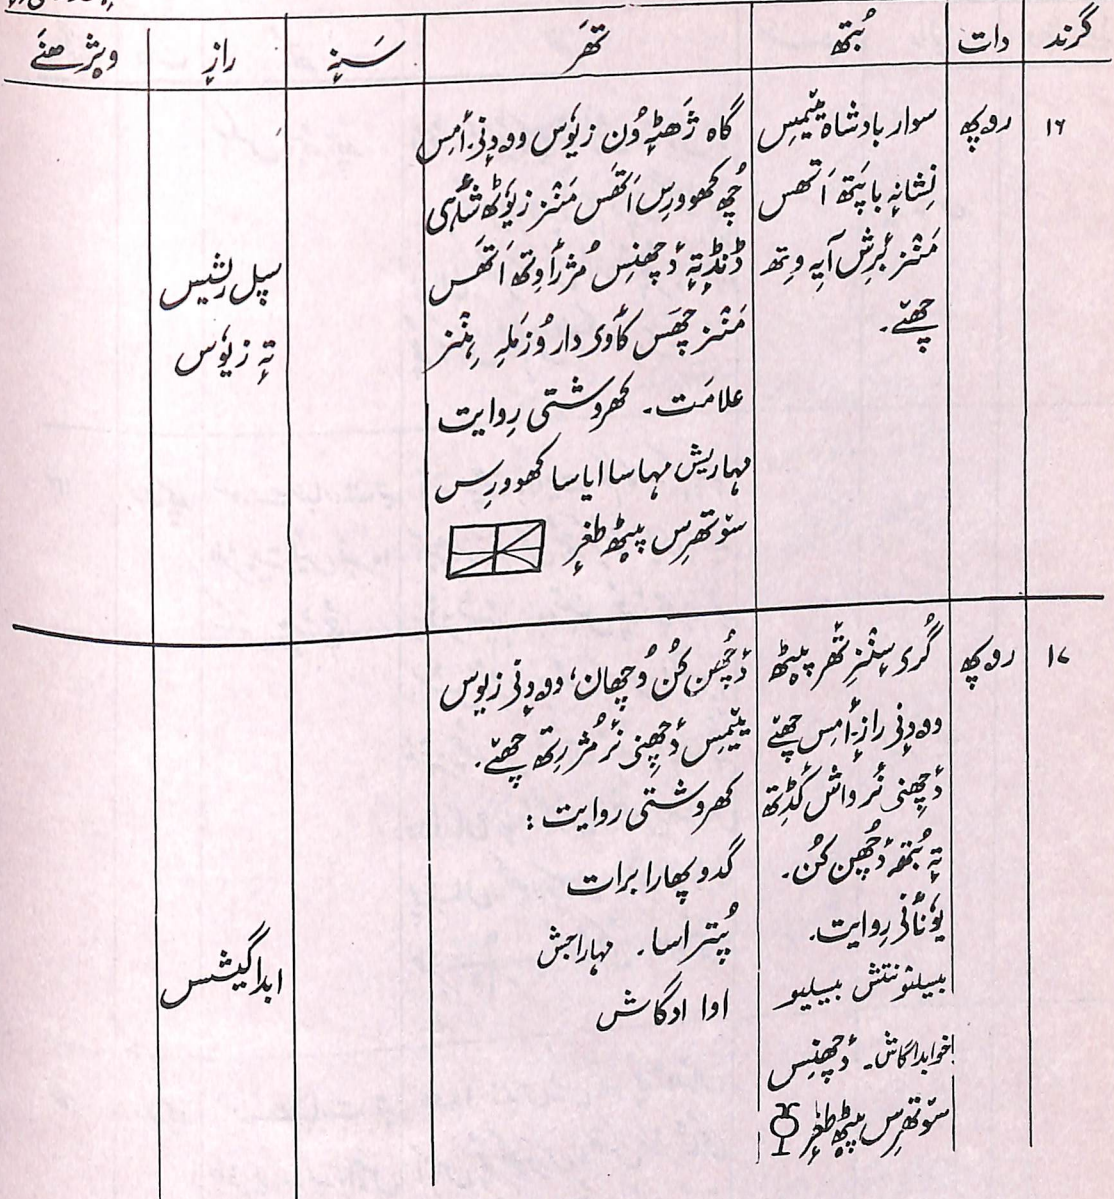 گرند دات بُتھ تھَر سَنہٕ رازٕ ویژھنَے
۱۶ روپھ
سوار بادشاہ یٔمِس
نِشانہٕ باپَتھ اَتھس
مَنٛز بُرش آیہِ وِتھ
چھےٚ۔
گاہ ژھَٹہٕ وُن زیوٗس وودٕنۍ۔ أمِس
چُھ کھوورِس اَتھَس مَنٛز زیوٗٹھ شٲہی
ڈنڈٕ تہٕ دٔچھنِس مُژرأوِتھ اَتھَس
مَنٛز چھَس کأوۍ دار وُزمَلہِ ہِنٛز
علامَت۔ کھروشتی رِوایت
مہاریش مہاسا ایاسا کھوورِس
سۆتھرِس پیٹھ طغرٕ
سپل رِشیس
تہٕ زیوٗس
۱۷ روپھ
گُرۍ سٕنٛزِ تھَرِ پیٹھ
وودٕنۍ رازٕ۔ أمِس چھےٚ
دٔچھِنۍ نٔر واش کٔڈِتھ
تہٕ بُتھ دٔچھِن کُن۔
یوٗنأنۍ رِوایت۔
بیسلئونتش بیسلیو
اخوابداگاش۔ دٔچھنِس
سۆتھرِس پیٹھ طغرٕ
دٔچھِن کُن وُچھان، وودٕنۍ زیوٗس
یٔمِس دٔچھِنۍ نٔر مُژرِتھ چھےٚ۔
کھروشتی روایت :
گدو پھارا برات
پُتراسا۔ مہاراجش
اوا ادگاش
ابداگیشس